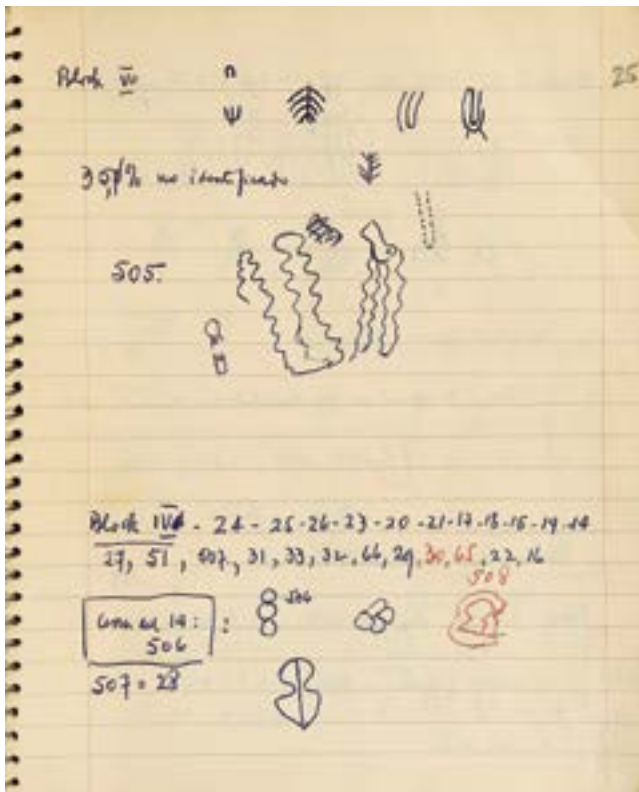 25
Block IV
35,1% no identificado
505.
Block IV - 24 - 25 - 26 - 23 - 20 - 21 - 17 - 18 - 15 - 19 - 14
27, 51, 507, 31, 33, 32, 66, 29, 30, 65, 22, 16
508
506
506
507 = 28